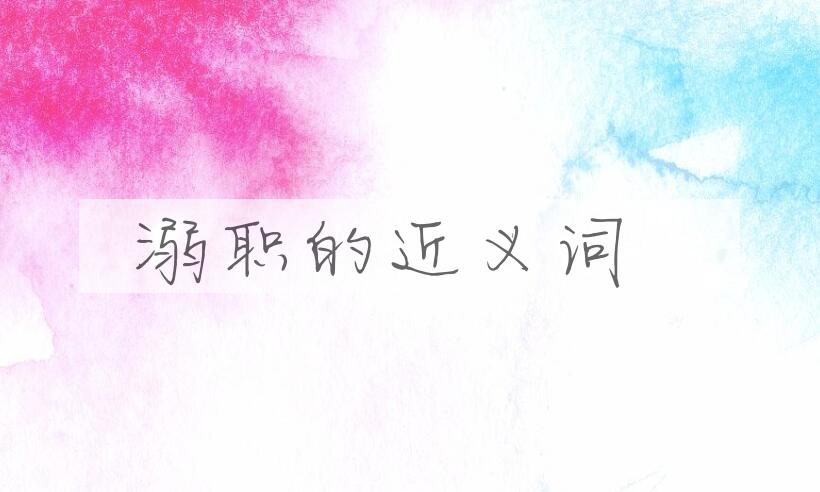 溺职的近义词